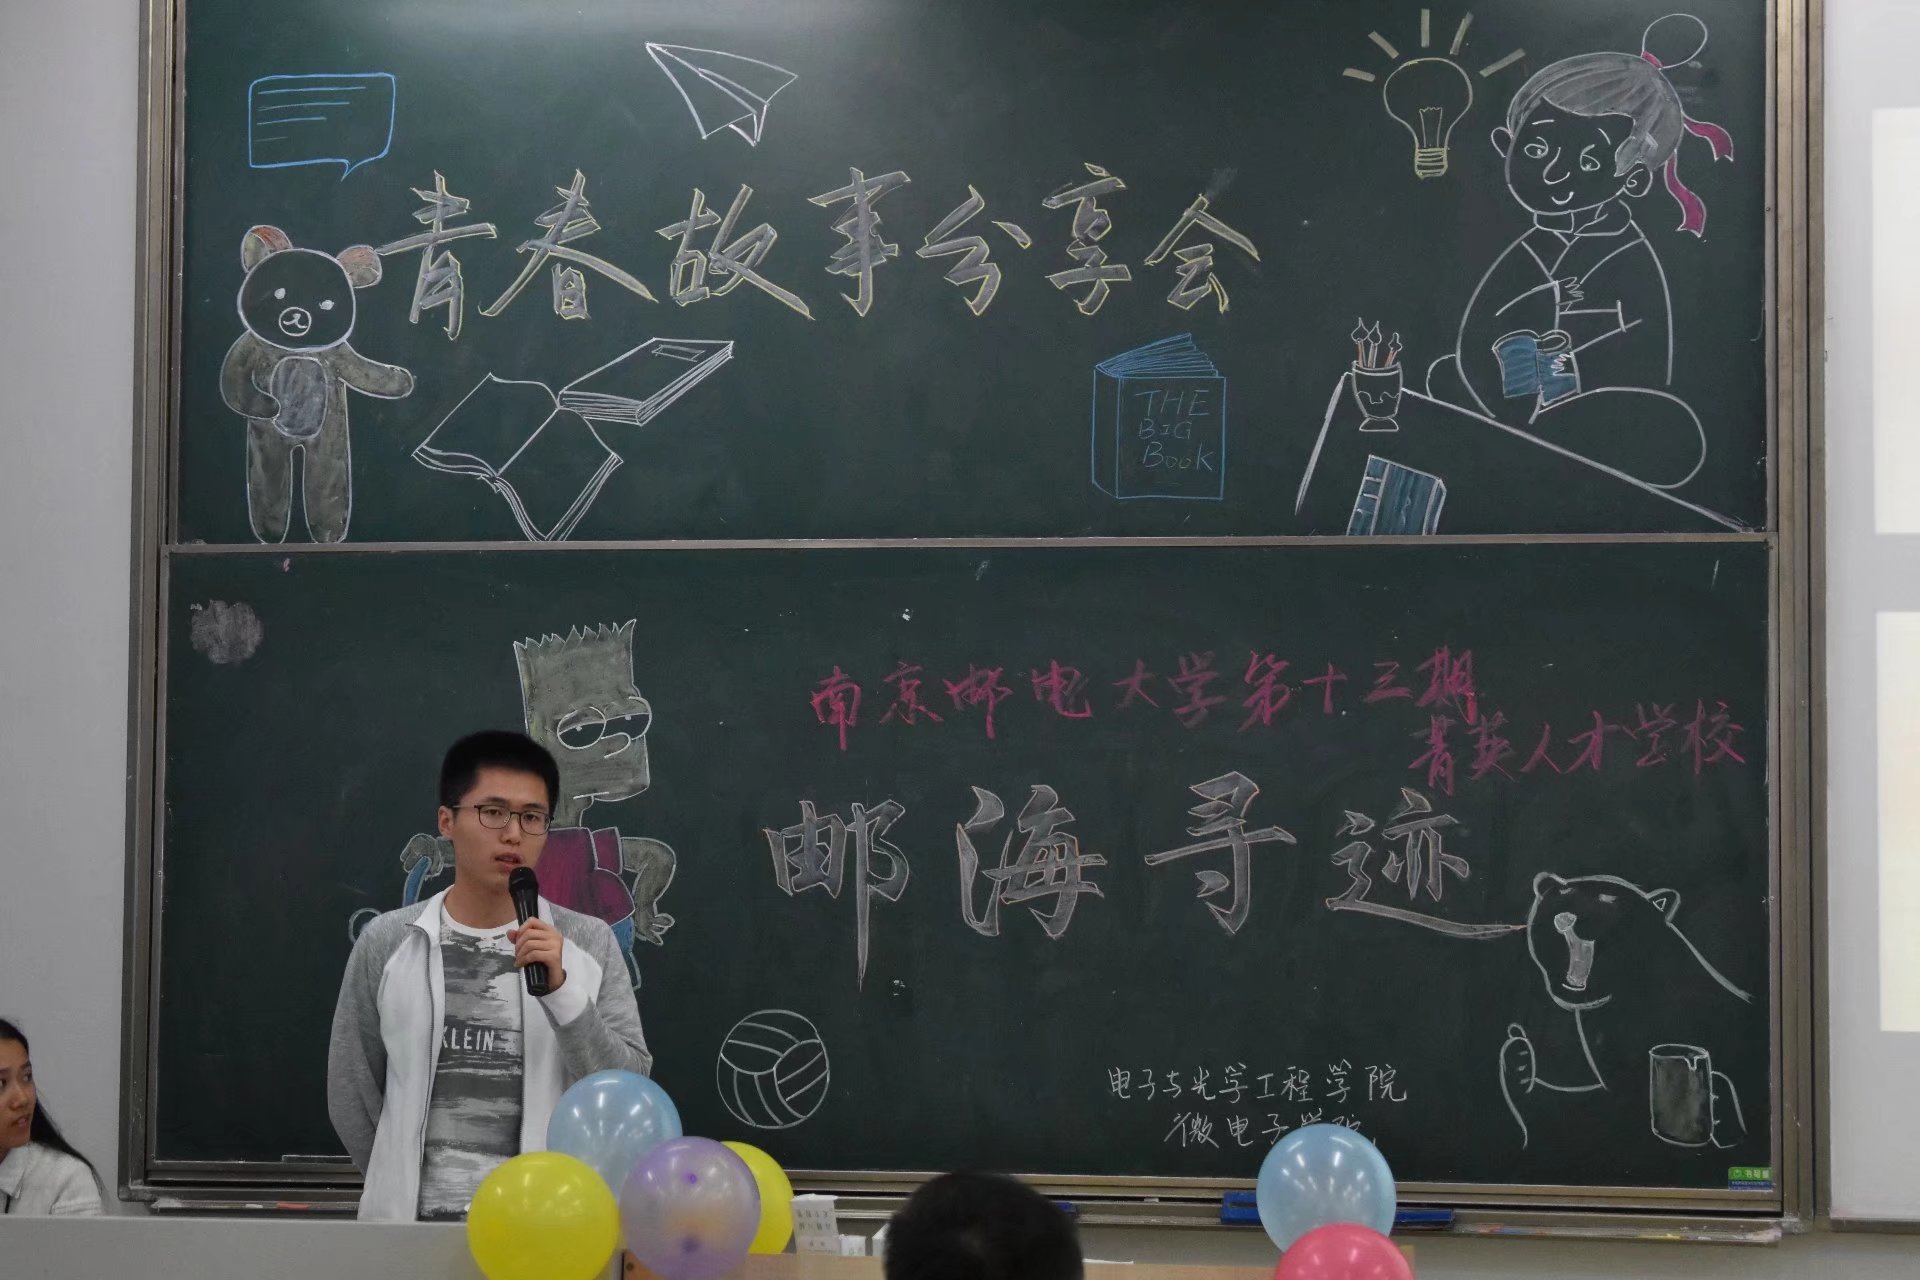 青春故事分享会
THE
BIG
Book
南京邮电大学第十三期
菁英人才学校
邮海寻迹
KLEIN
电子与光学工程学院
微电子学院